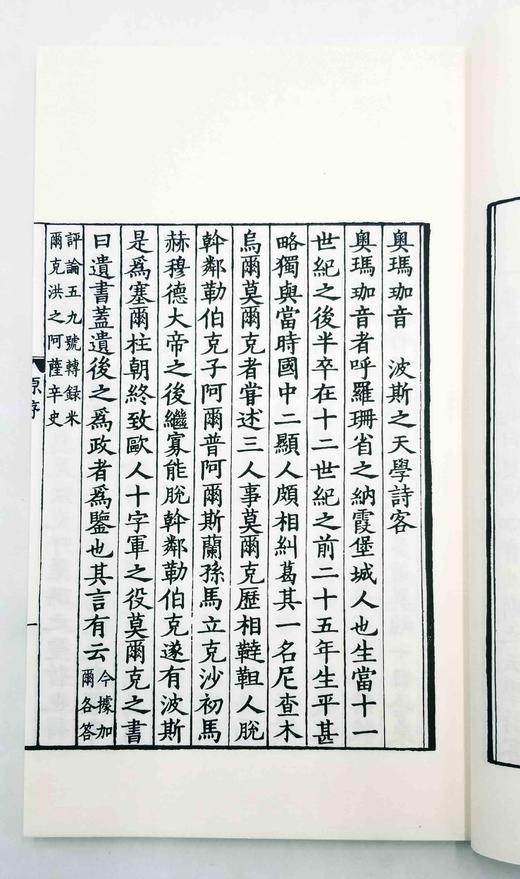 奧瑪珈音　波斯之天學詩客
奧瑪珈音者呼羅珊省之納霞堡城人也生當十一
世紀之後半卒在十二世紀之前二十五年生平甚
略獨與當時國中二顯人頗相糾葛其一名尼查木
烏爾莫爾克者嘗述三人事莫爾克歷相韃靼人脫
幹鄰勒伯克子阿爾普阿爾斯蘭孫馬立克沙初馬
赫穆德大帝之後繼寡能脫幹鄰勒伯克遂有波斯
是為塞爾柱朝終致歐人十字軍之役莫爾克之書
曰遺書蓋遺後之為政者為鑒也其言有云今據加
爾各答
評論五九號轉錄米
爾克洪之阿薩辛史
原序
一